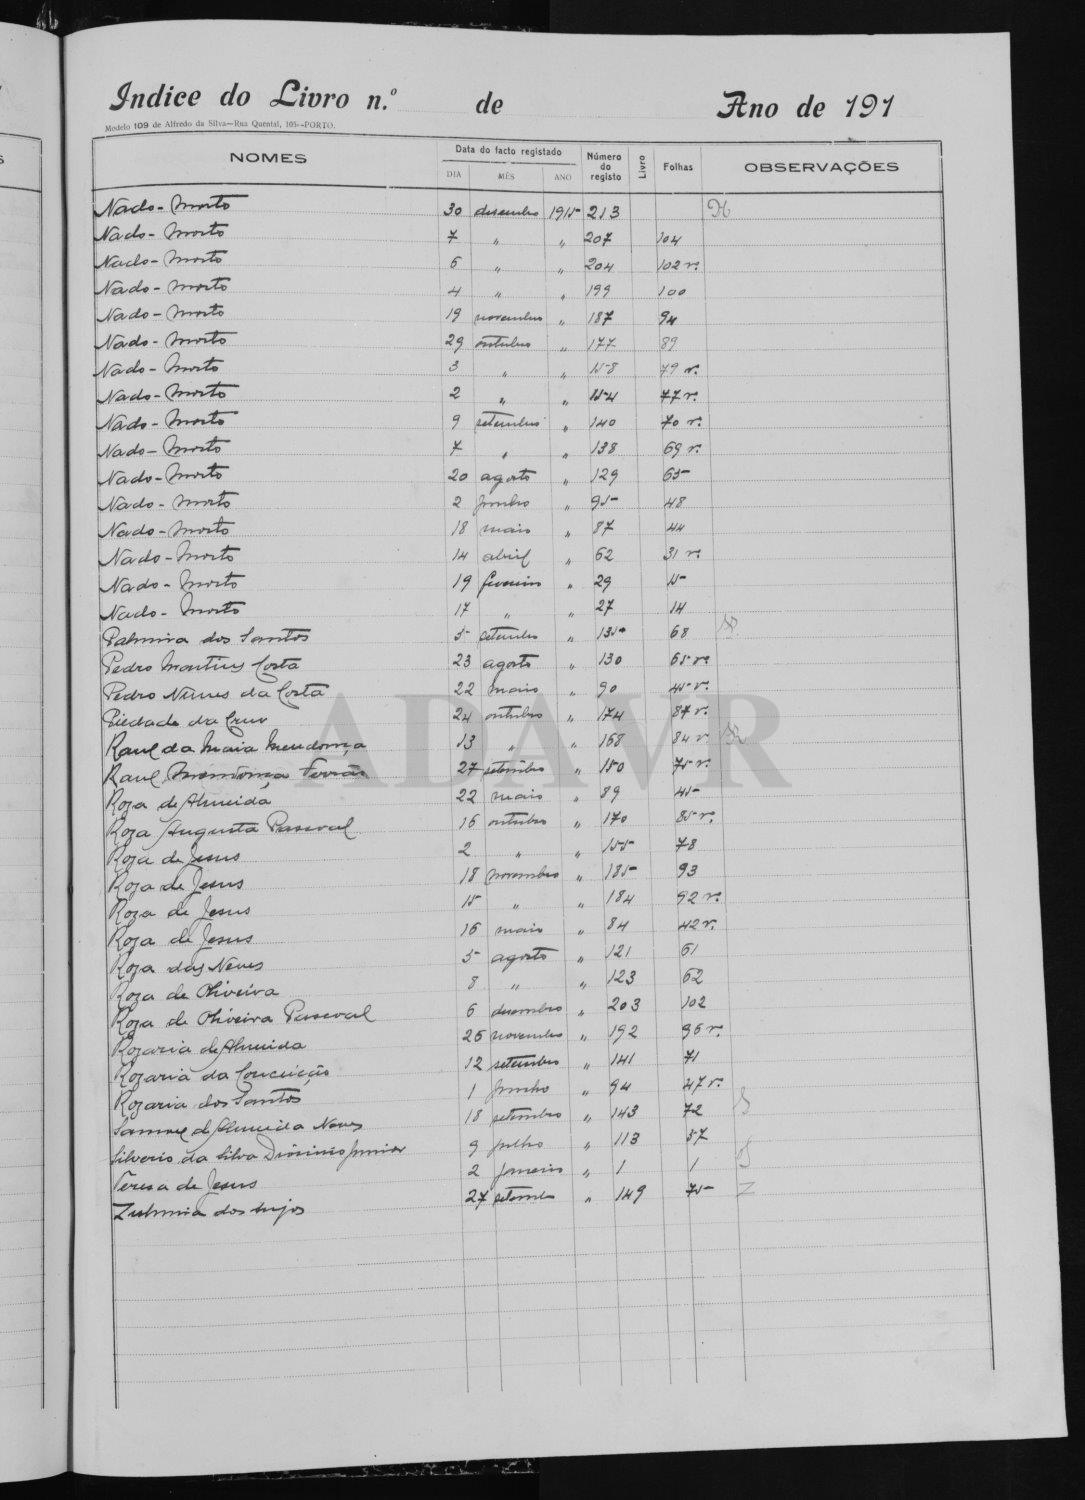 Indice do Livro n.º de Ano de 191
Modelo 109 de Alfredo da Silva—Rua Quental, 105--PORTO.
NOMES Data do facto registado Número do registo Livro Folhas OBSERVAÇÕES
DIA MÊS ANO
Nado-Morto 30 desembro 1915 213 N
Nado-Morto 7 " " 207 104
Nado-Morto 6 " " 204 102 v.
Nado-Morto 4 " " 199 100
Nado-Morto 19 novembro " 187 94
Nado-Morto 29 outubro " 177 89
Nado-Morto 3 " " 158 79 v.
Nado-Morto 2 " " 154 77 v.
Nado-Morto 9 setembro " 140 70 v.
Nado-Morto 7 " " 138 69 v.
Nado-Morto 20 agosto " 129 65
Nado-Morto 2 junho " 95 48
Nado-Morto 18 maio " 87 44
Nado-Morto 14 abril " 62 31 v.
Nado-Morto 19 fevereiro " 29 15
Nado-Morto 17 " " 27 14
Palmira dos Santos 5 setembro " 135 68 P
Pedro Martins Costa 23 agosto " 130 65 v.
Pedro Nunes da Costa 22 maio " 90 45 v.
Piedade da Cruz 24 outubro " 174 87 v.
Raul da Maia Mendonça 13 " " 168 84 v R
Raul Mendonça Ferrão 27 setembro " 150 75 v.
Roza de Almeida 22 maio " 89 45
Roza Augusta Pascoal 16 outubro " 170 85 v.
Roza de Jesus 2 " " 155 78
Roza de Jesus 18 novembro " 185 93
Roza de Jesus 15 " " 184 92 v.
Roza de Jesus 16 maio " 84 42 v.
Roza das Neves 5 agosto " 121 61
Roza de Oliveira 8 " " 123 62
Roza de Oliveira Pascoal 6 desembro " 203 102
Rozaria de Almeida 26 novembro " 192 96 v.
Rozaria da Conceição 12 setembro " 141 71
Rozaria dos Santos 1 junho " 94 47 v.
Samuel d'Almeida Neves 18 setembro " 143 72 S
Silverio da Silva Dionisio Junior 9 julho " 113 57
Teresa de Jesus 2 janeiro " 1 1
Zulmira dos Anjos 27 setembro " 149 75 Z
ADAVR